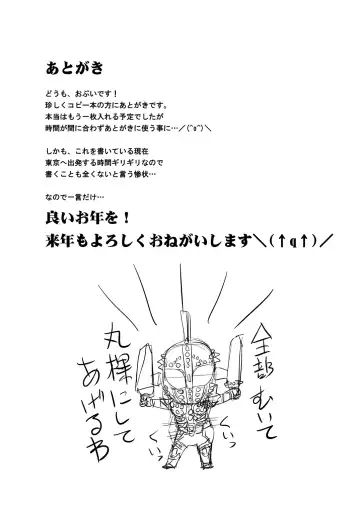 あとがき
どうも、おぷいです!
珍しくコピー本の方にあとがきです。
本当はもう一枚入れる予定でしたが
時間が間に合わずあとがきに使う事に…／(^q^)＼
しかも、これを書いている現在
東京へ出発する時間ギリギリなので
書くことも全くないと言う惨状…
なので一言だけ…
良いお年を!
来年もよろしくおねがいします＼(↑q↑)／
全部むいて
丸裸にして
あげるわ
くいっ
くいっ